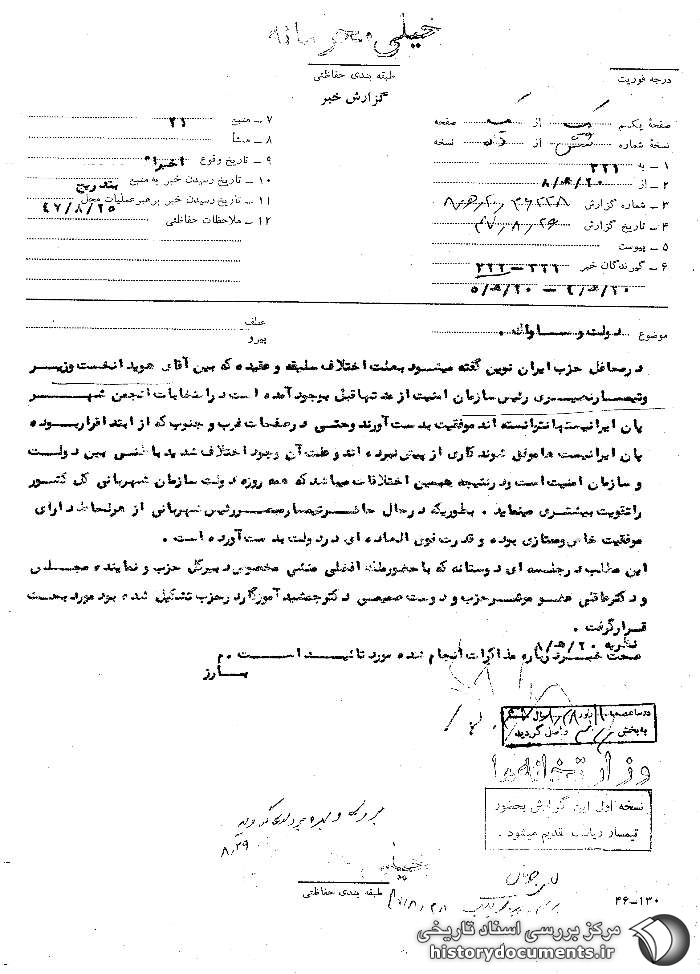 خیلی محرمانه
طبقه بندی حفاظتی
درجه فوریت
گزارش خبر
صفحهٔ یکم یک از یک صفحه
نسخهٔ شماره شش از نسخه
۱ – به ۳۴۱
۲ – از ۸/ﻫ/۲۰
۳ – شمارهٔ گزارش
۴ – تاریخ گزارش ۴۷٫۸٫۲۶
۵ – پیوست
۶ – گیرندگان خبر
۷ – منبع ۲۱
۸ – منشأ
۹ – تاریخ وقوع اخیرا"
۱۰ – تاریخ رسیدن خبر به منبع بتدریج
۱۱ – تاریخ رسیدن خبر به رهبر عملیات محل ۴۷/۸/۲۵
۱۲ – ملاحظات حفاظتی
موضوع دولت و ساواک .
عطف
پیرو
در محافل حزب ایران نوین گفته میشود بعلت اختلاف سلیقه و عقیده که بین آقای هویدا نخست وزیر
و تیمسار نصیری رئیس سازمان امنیت از مدتها قبل بوجود آمده است در انتخابات انجمن شهر
پان ایرانیستها نتوانسته اند موفقیت بدست آورند و حتی در صفحات غرب و جنوب که از ابتدا قرار بوده
پان ایرانیست ها موفق شوند کاری از پیش نبرده اند و علت آن وجود اختلاف شدید باطنی بین دولت
و سازمان امنیت است و در نتیجه همین اختلافات میباشد که همه روزه دولت سازمان شهربانی کل کشور
را تقویت بیشتری مینماید . بطوریکه در حال حاضر تیمسار مبصر رئیس شهربانی از هر لحاظ دارای
موفقیت خاص و ممتازی بوده و قدرت فوق العاده ای در دولت بدست آورده است .
این مطلب در جلسه ای دوستانه که با حضور ملکه افضلی منشی مخصوص دبیرکل حزب و نماینده مجلس
و دکتر عاقلی عضو موثر حزب و دوست صمیمی دکتر جمشید آموزگار در حزب تشکیل شده بود مورد بحث
قرار گرفت .
نظریه ۸/ﻫ/۲۰
صحت خبر درباره مذاکرات انجام شده مورد تائید است . م
مبارز
واصل گردید
نسخه اول این گزارش بحضور
تیمسار ریاست تقدیم میشود .
بررسی و بهره برداری گردید
۸٫۲۹
طبقه بندی حفاظتی
۴۷/۸/۲۸
۴۶–۱۳۰
مرکز بررسی اسناد تاریخی
historydocuments.ir